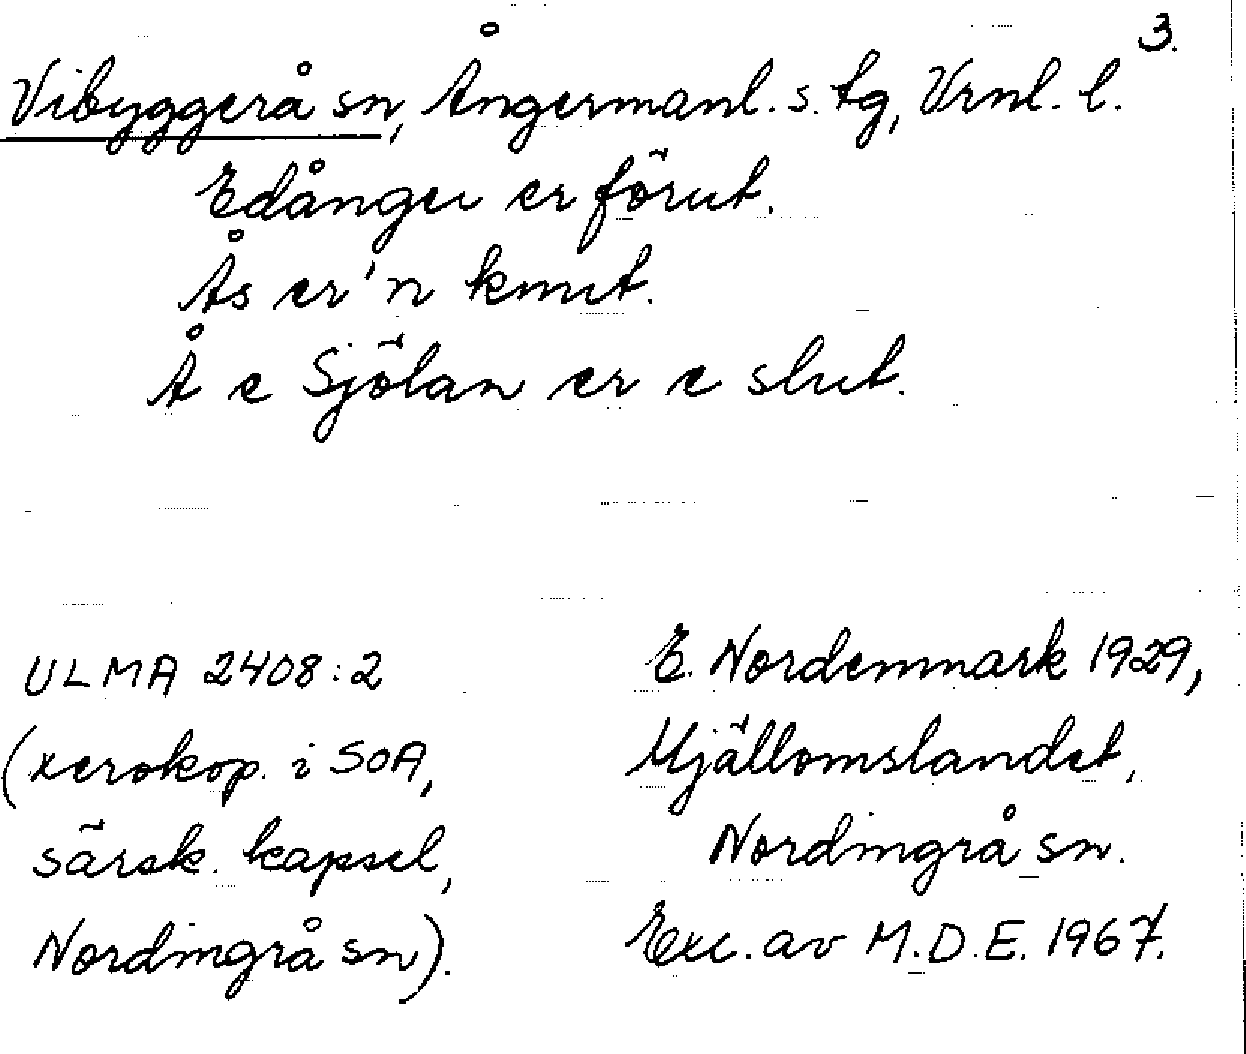 3.
Vibyggerå sn, Ångermanl. s. tg, Vrnl. l.
Edånger er förut.
Ås er'n knut.
Å e Sjölan er e slut.
ULMA 2408:2
(xerokop. i SOA,
särsk. kapsel,
Nordingrå sn).
E. Nordenmark 1929,
Mjällomslandet,
Nordingrå sn.
Exc. av M.D.E. 1967.